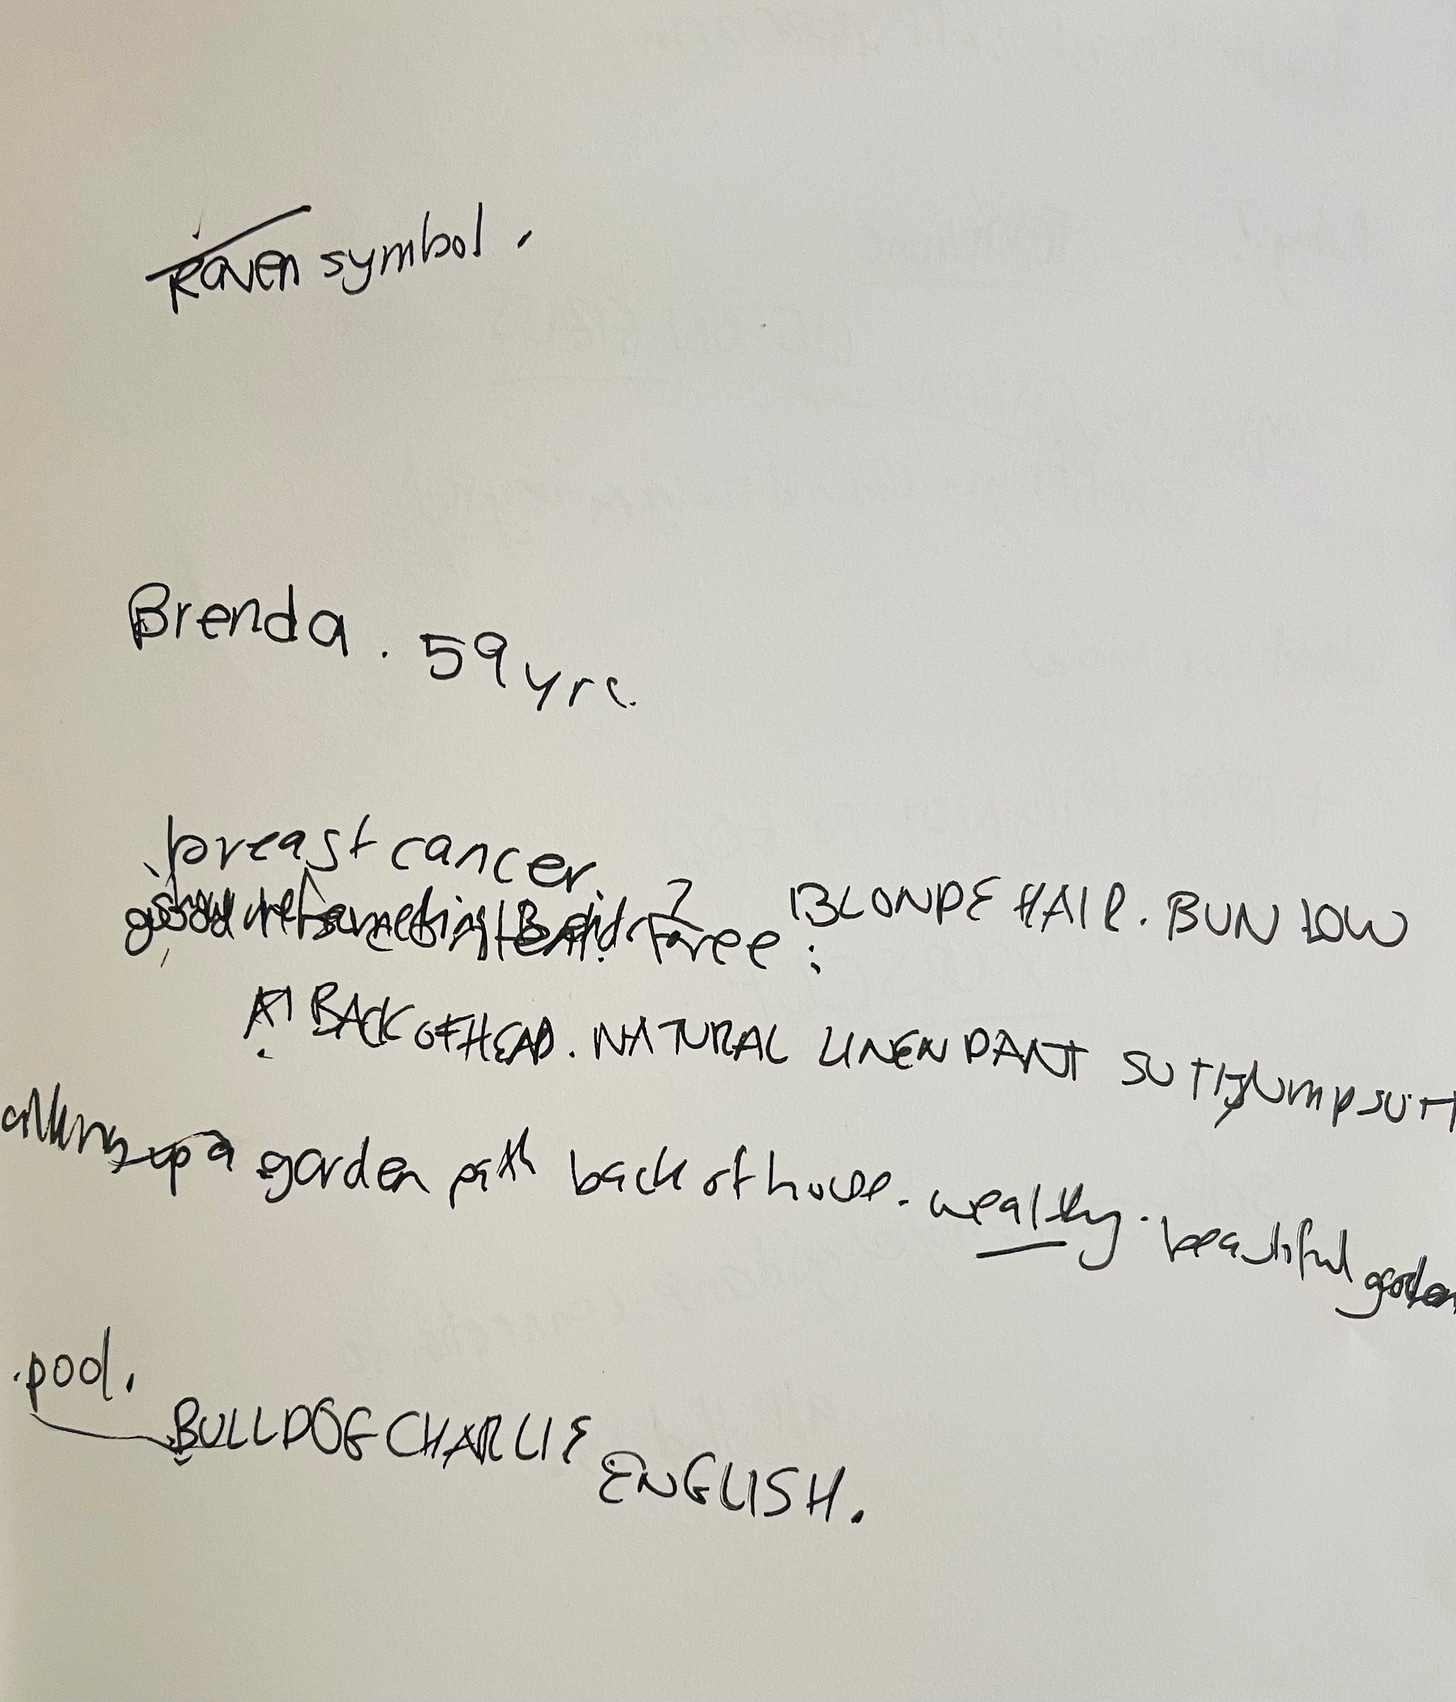 Raven symbol.
Brenda. 59 yrs.
breast cancer.
show me something Brenda ? Free : BLONDE HAIR. BUN LOW
AT BACK OF HEAD. NATURAL LINEN PANT SUIT/JUMPSUIT
up a garden path back of house. wealthy. beautiful garden
pool.
BULLDOG CHARLIE
ENGLISH.